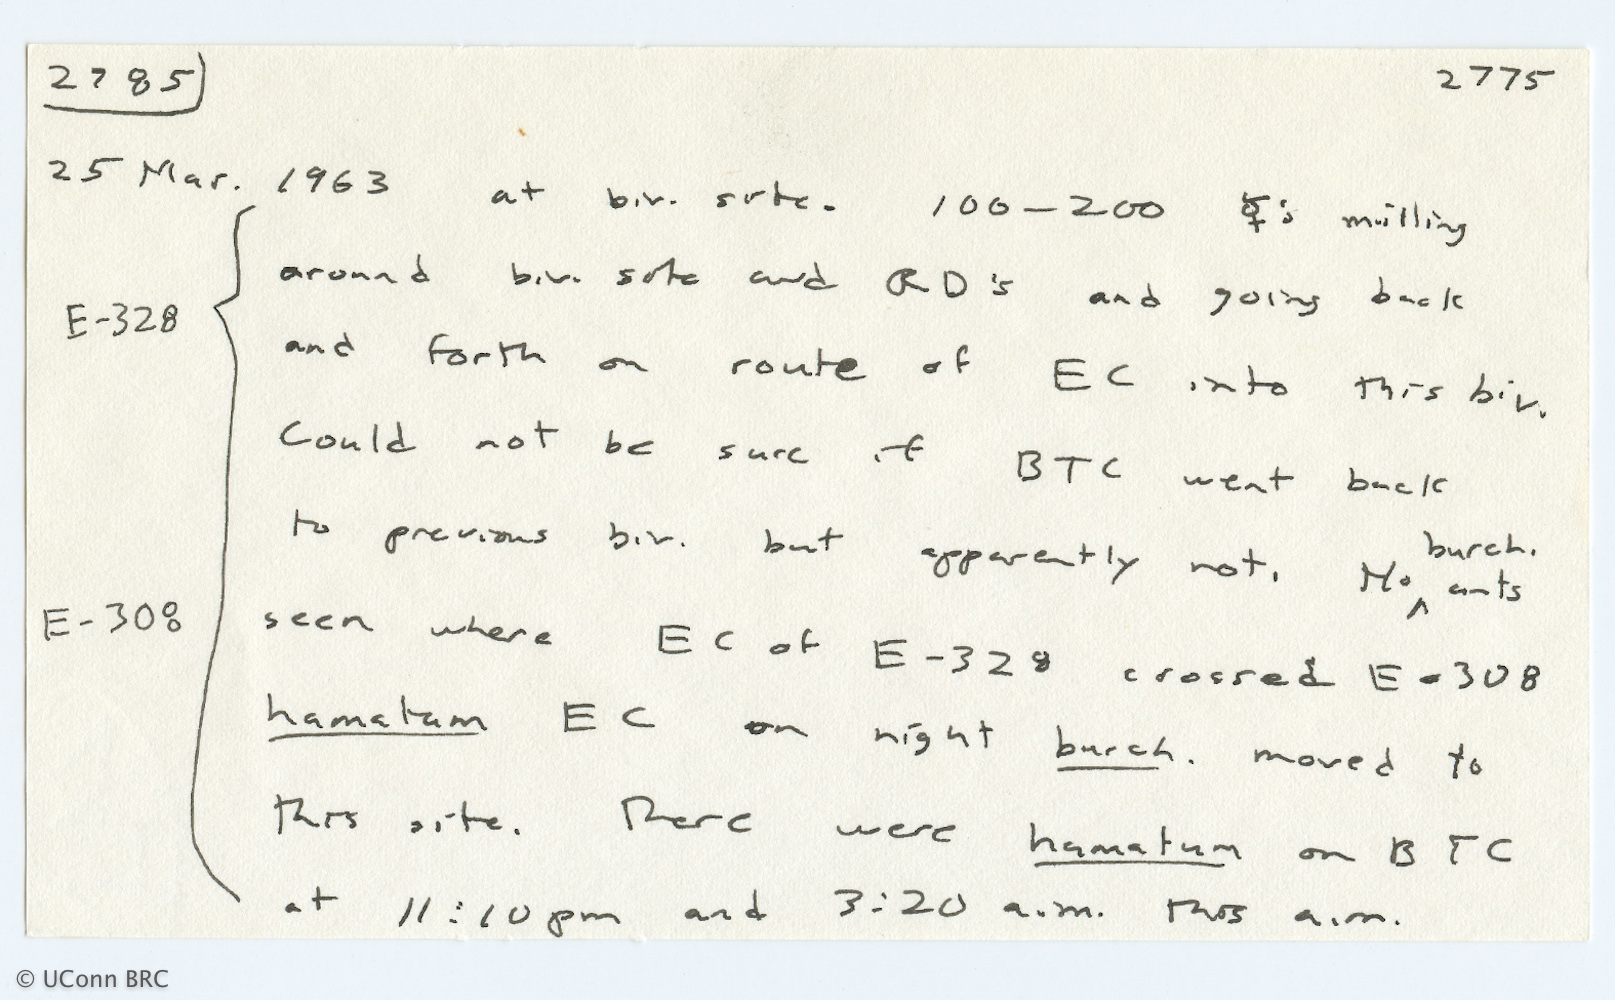 2785 2775
25 Mar. 1963 at biv. site. 100-200 ☿'s milling
around biv. site and RD's and going back
E-328
and forth on route of EC into this biv.
Could not be sure if BTC went back
to previous biv. but apparently not. No ^burch. ants
E-308
seen where EC of E-328 crossed E-308
hamatum EC on night burch. moved to
this site. There were hamatum on BTC
at 11:10 pm and 3:20 a.m. this a.m.
© UConn BRC